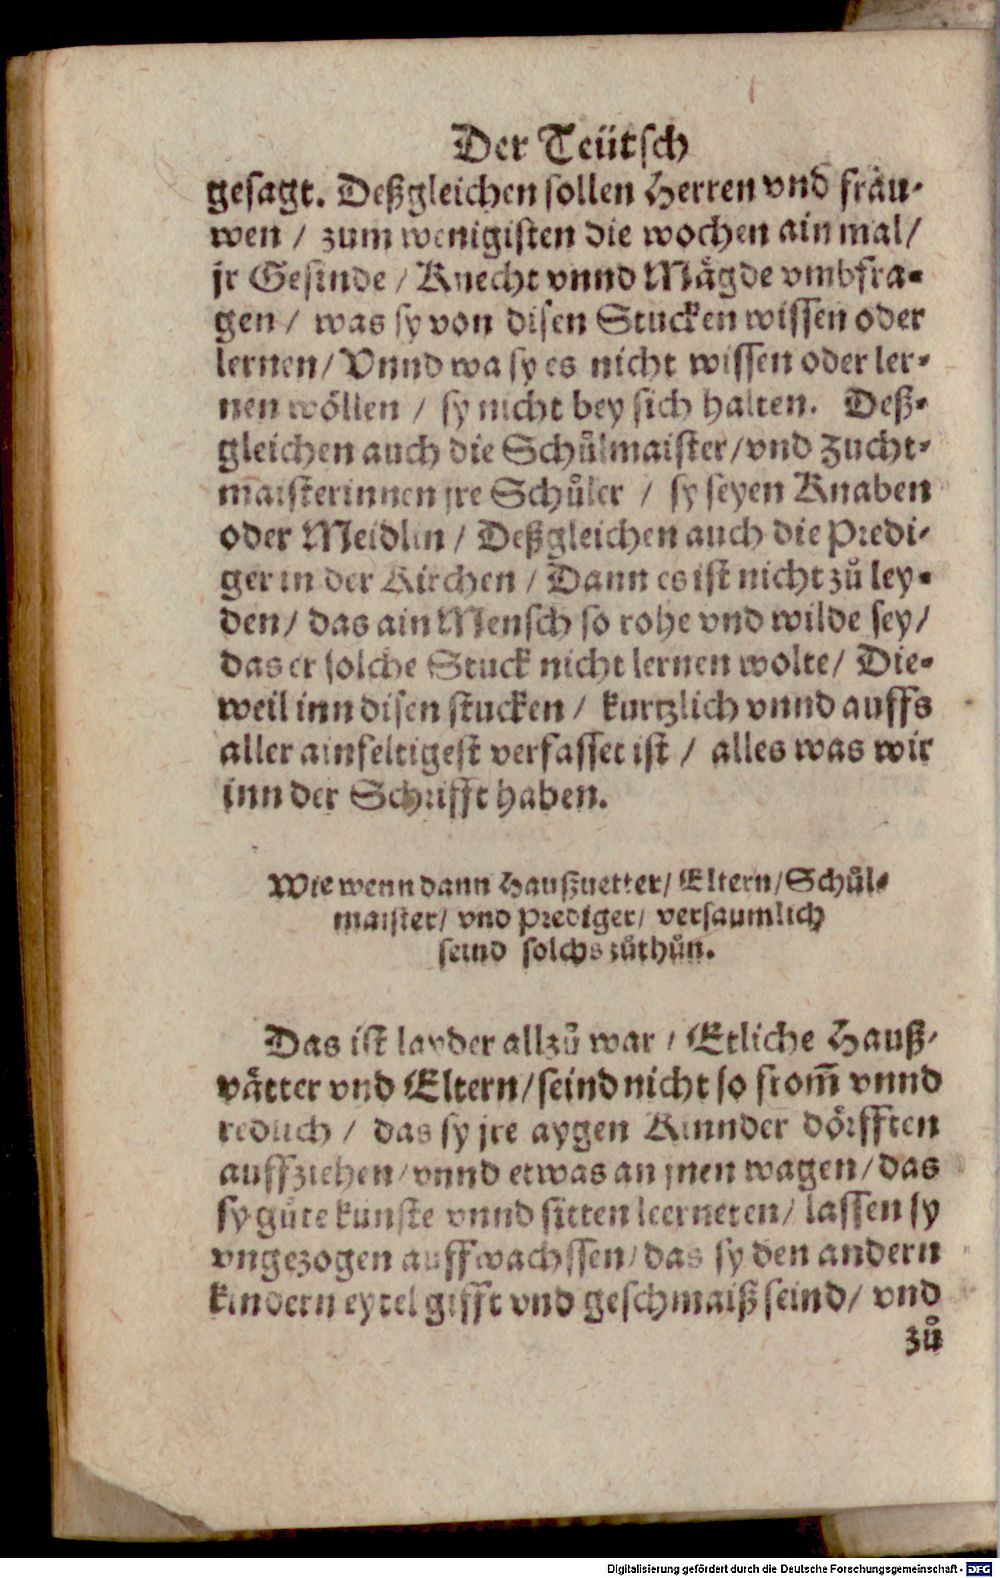 Der Teütsch
gesagt. Deßgleichen sollen Herren vnd fräu-
wen / zum wenigisten die wochen ain mal /
jr Gesinde / Knecht vnnd Mägde vmbfra-
gen / was sy von disen Stucken wissen oder
lernen / Vnnd wa sy es nicht wissen oder ler-
nen wöllen / sy nicht bey sich halten. Deß-
gleichen auch die Schůlmaister / vnd Zucht-
maisterinnen jre Schůler / sy seyen Knaben
oder Meidlin / Deßgleichen auch die Predi-
ger in der Kirchen / Dann es ist nicht zů ley-
den / das ain Mensch so rohe vnd wilde sey /
das er solche Stuck nicht lernen wolte / Die-
weil inn disen stucken / kurtzlich vnnd auffs
aller ainfeltigest verfasset ist / alles was wir
inn der Schrifft haben.
Wie wenn dann Haußuetter / Eltern / Schůl-
maister / vnd Prediger / versaumlich
seind solchs zůthůn.
Das ist layder allzů war / Etliche Hauß-
vätter vnd Eltern / seind nicht so from̃ vnnd
redlich / das sy jre aygen Kinnder dörfften
auffziehen / vnnd etwas an jnen wagen / das
sy gůte kunste vnnd sitten leerneten / lassen sy
vngezogen auffwachssen / das sy den andern
kindern eytel gifft vnd geschmaiß seind / vnd
zů
Digitalisierung gefördert durch die Deutsche Forschungsgemeinschaft - DFG